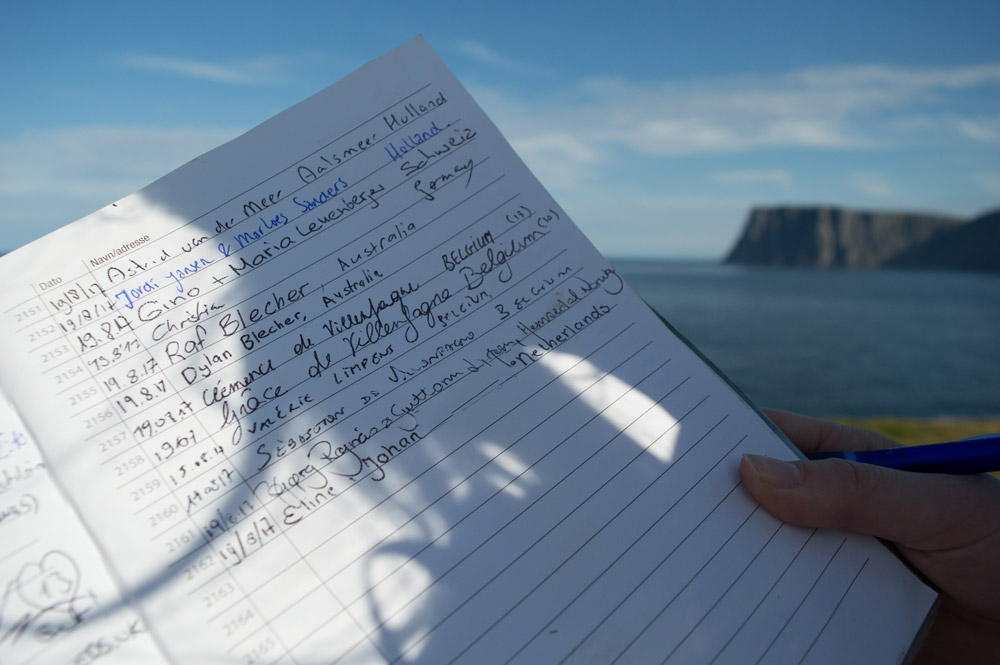 Dato Navn/adresse
2151 19/8/17 Astrid van der Meer Aalsmeer Holland
2152 19/8/17 Jordi Jansen & Marloes Sanders Holland
2153 19.8.17 Gino + Maria Leuenberger Schweiz
2154 19.8.17 Christin
2155 19.8.17 Raf Blecher, Australia
2156 19.8.17 Dylan Blecher, Australia
2157 Clémence de Villenfagne BELGIUM (13)
2158 19/07 Grâce de Villenfagne Belgium (10)
2159 VALÉRIE LIMPENS BELGIUM
2160 SÉBASTIEN DE VILLENFAGNE BELGIUM
2161 19/8/17 Georg
2162 19/8/17 Eline, Johan Netherlands
2163
2164
2165